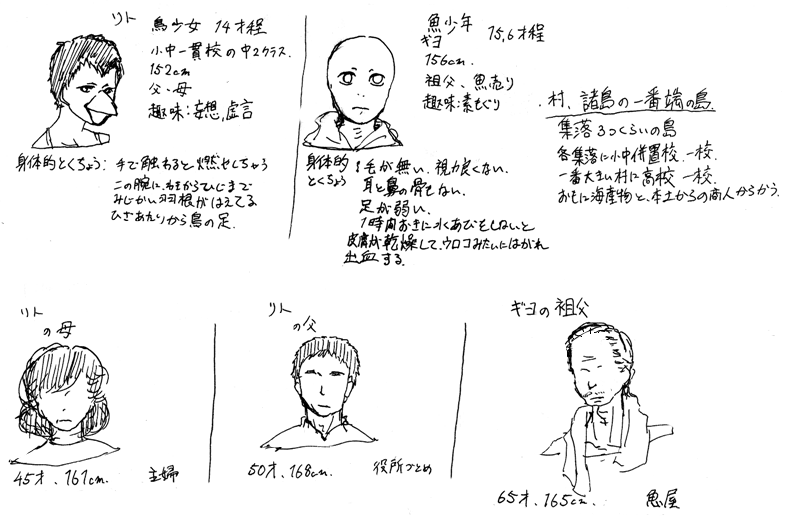 リト
鳥少女 14才程
小中一貫校の中2クラス.
152cm
父、母
趣味:妄想,虚言
身体的とくちょう:手で触れると燃やしちゃう
二の腕に、ねもからひじまで
みじかい羽根がはえてる
ひざあたりから鳥の足.
魚少年
ギヨ
15,6才程
156cm.
祖父、魚売り
趣味:素もぐり
身体的
とくちょう
:毛が無い、視力良くない.
耳と鼻の骨もない.
足が弱い.
1時間おきに水あびをしないと
皮膚が乾燥して、ウロコみたいにはがれ
出血する.
・村、諸島の一番端の島.
集落3つくらいの島
各集落に小中併置校 一校.
一番大きい村に高校 一校.
おもに海産物と、本土からの商人からかう.
リト
の母
45才、161cm. 主婦
リト
の父
50才、168cm. 役所づとめ
ギヨの祖父
65才、165cm. 魚屋